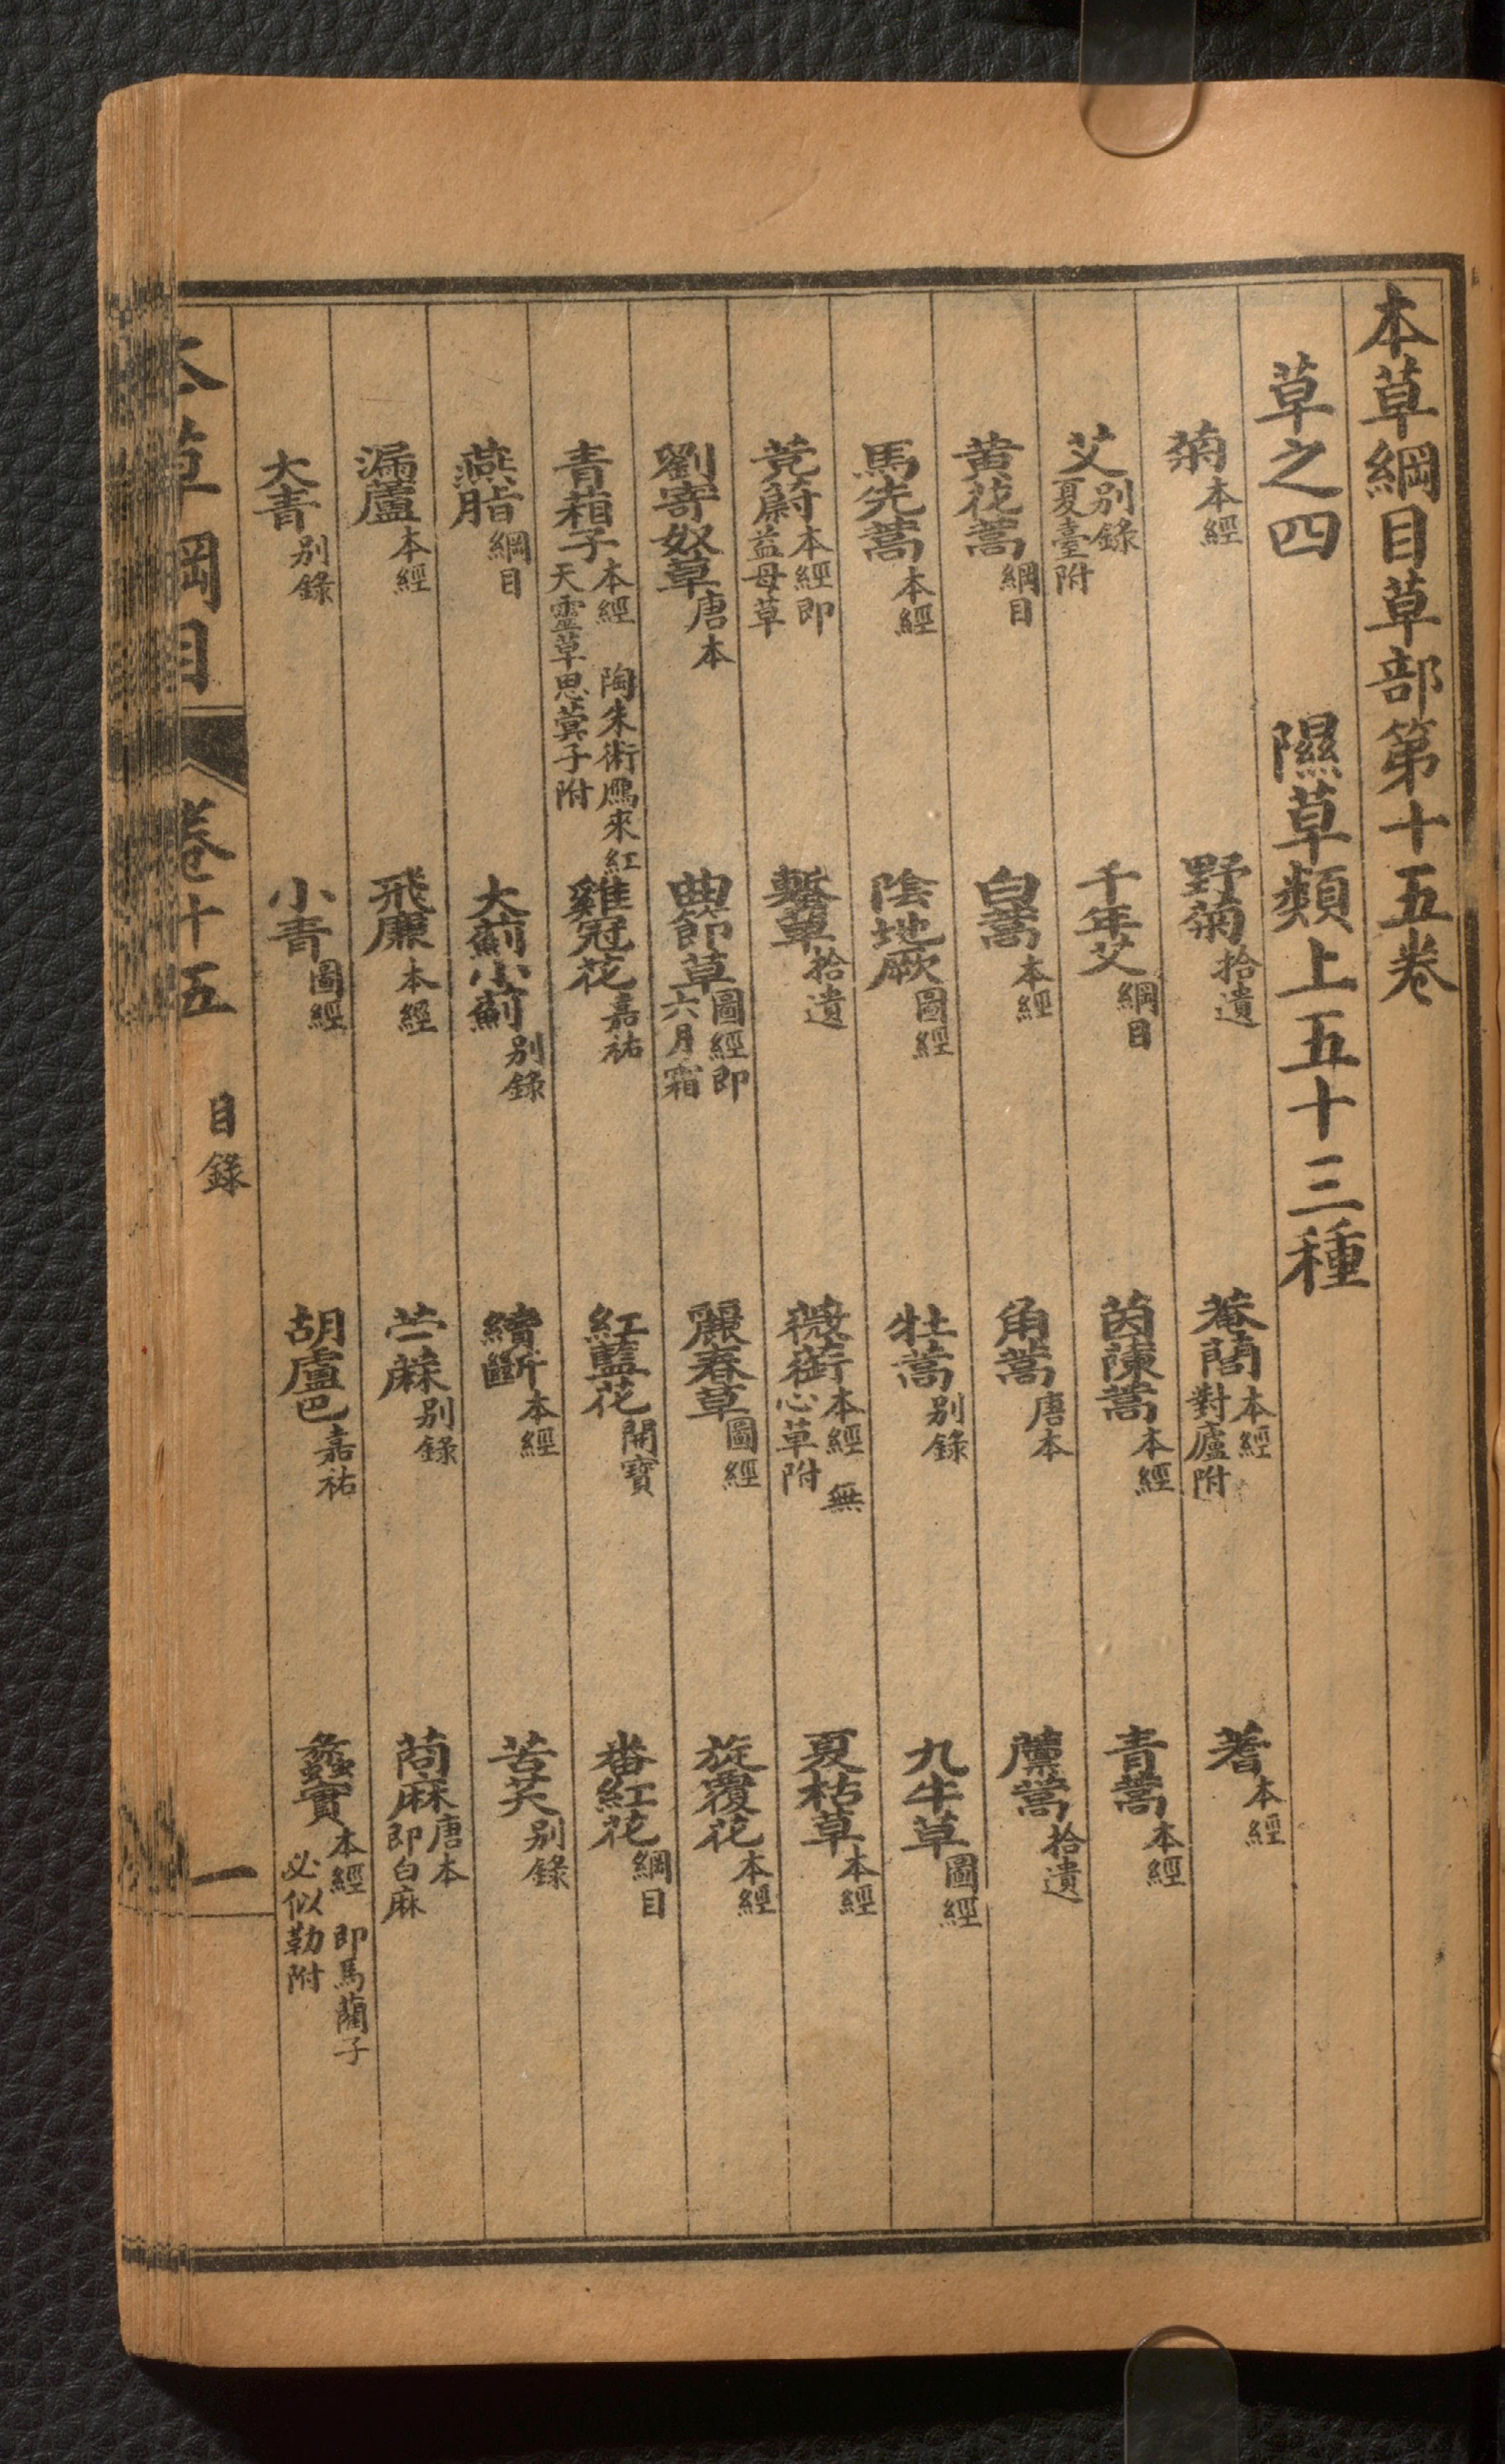 本草綱目草部第十五卷
草之四　隰草類上五十三種
菊本經　野菊拾遺　菴䕡本經對廬附　蓍本經
艾别錄夏臺附　千年艾綱目　茵蔯蒿本經　青蒿本經
黄花蒿綱目　白蒿本經　角蒿唐本　藘蒿拾遺
馬先蒿本經　陰地厥圖經　牡蒿别錄　九牛草圖經
茺蔚本經即益母草　蔪草拾遺　薇蘅本經　無心草附　夏枯草本經
劉寄奴草唐本　曲節草圖經即六月霜　麗春草圖經　旋覆花本經
青葙子本經　陶朱術鴈來紅天靈草思蓂子附　雞冠花嘉祐　紅藍花開寶　番紅花綱目
燕脂綱目　大薊小薊别錄　續斷本經　苦芺别錄
漏蘆本經　飛廉本經　苧蔴别錄　䔛麻唐本即白麻
大青别錄　小青圖經　胡盧巴嘉祐　蠡實本經　即馬藺子必似勒附
本草綱目　卷十五　目錄　一